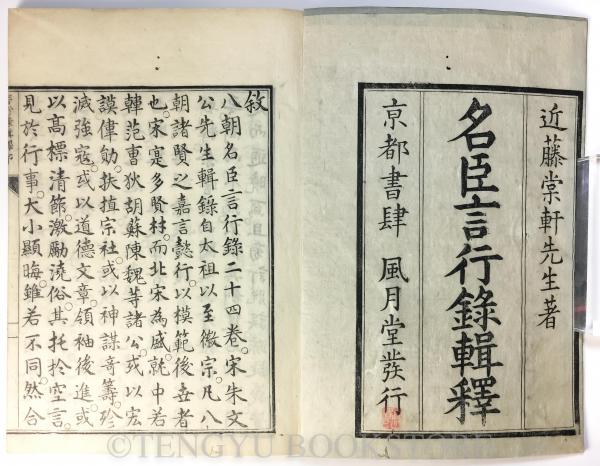 近藤棠軒先生著
名臣言行錄輯釋
京都書肆 風月堂發行
敘
八朝名臣言行錄二十四卷。宋朱文
公先生輯錄自太祖以至徽宗。凡八
朝諸賢之嘉言懿行。以模範後世者
也。宋寔多賢材。而北宋為盛就中若
韓范曹狄胡蘇陳魏等諸公。或以宏
謨偉勛。扶植宗社。或以神謀奇籌殄
滅強寇。或以道德文章。領袖後進。或
以高標清節。激勵澆俗。其托於空言。
見於行事。大小顯晦。雖若不同。然合
©TENGYU BOOKSTORE